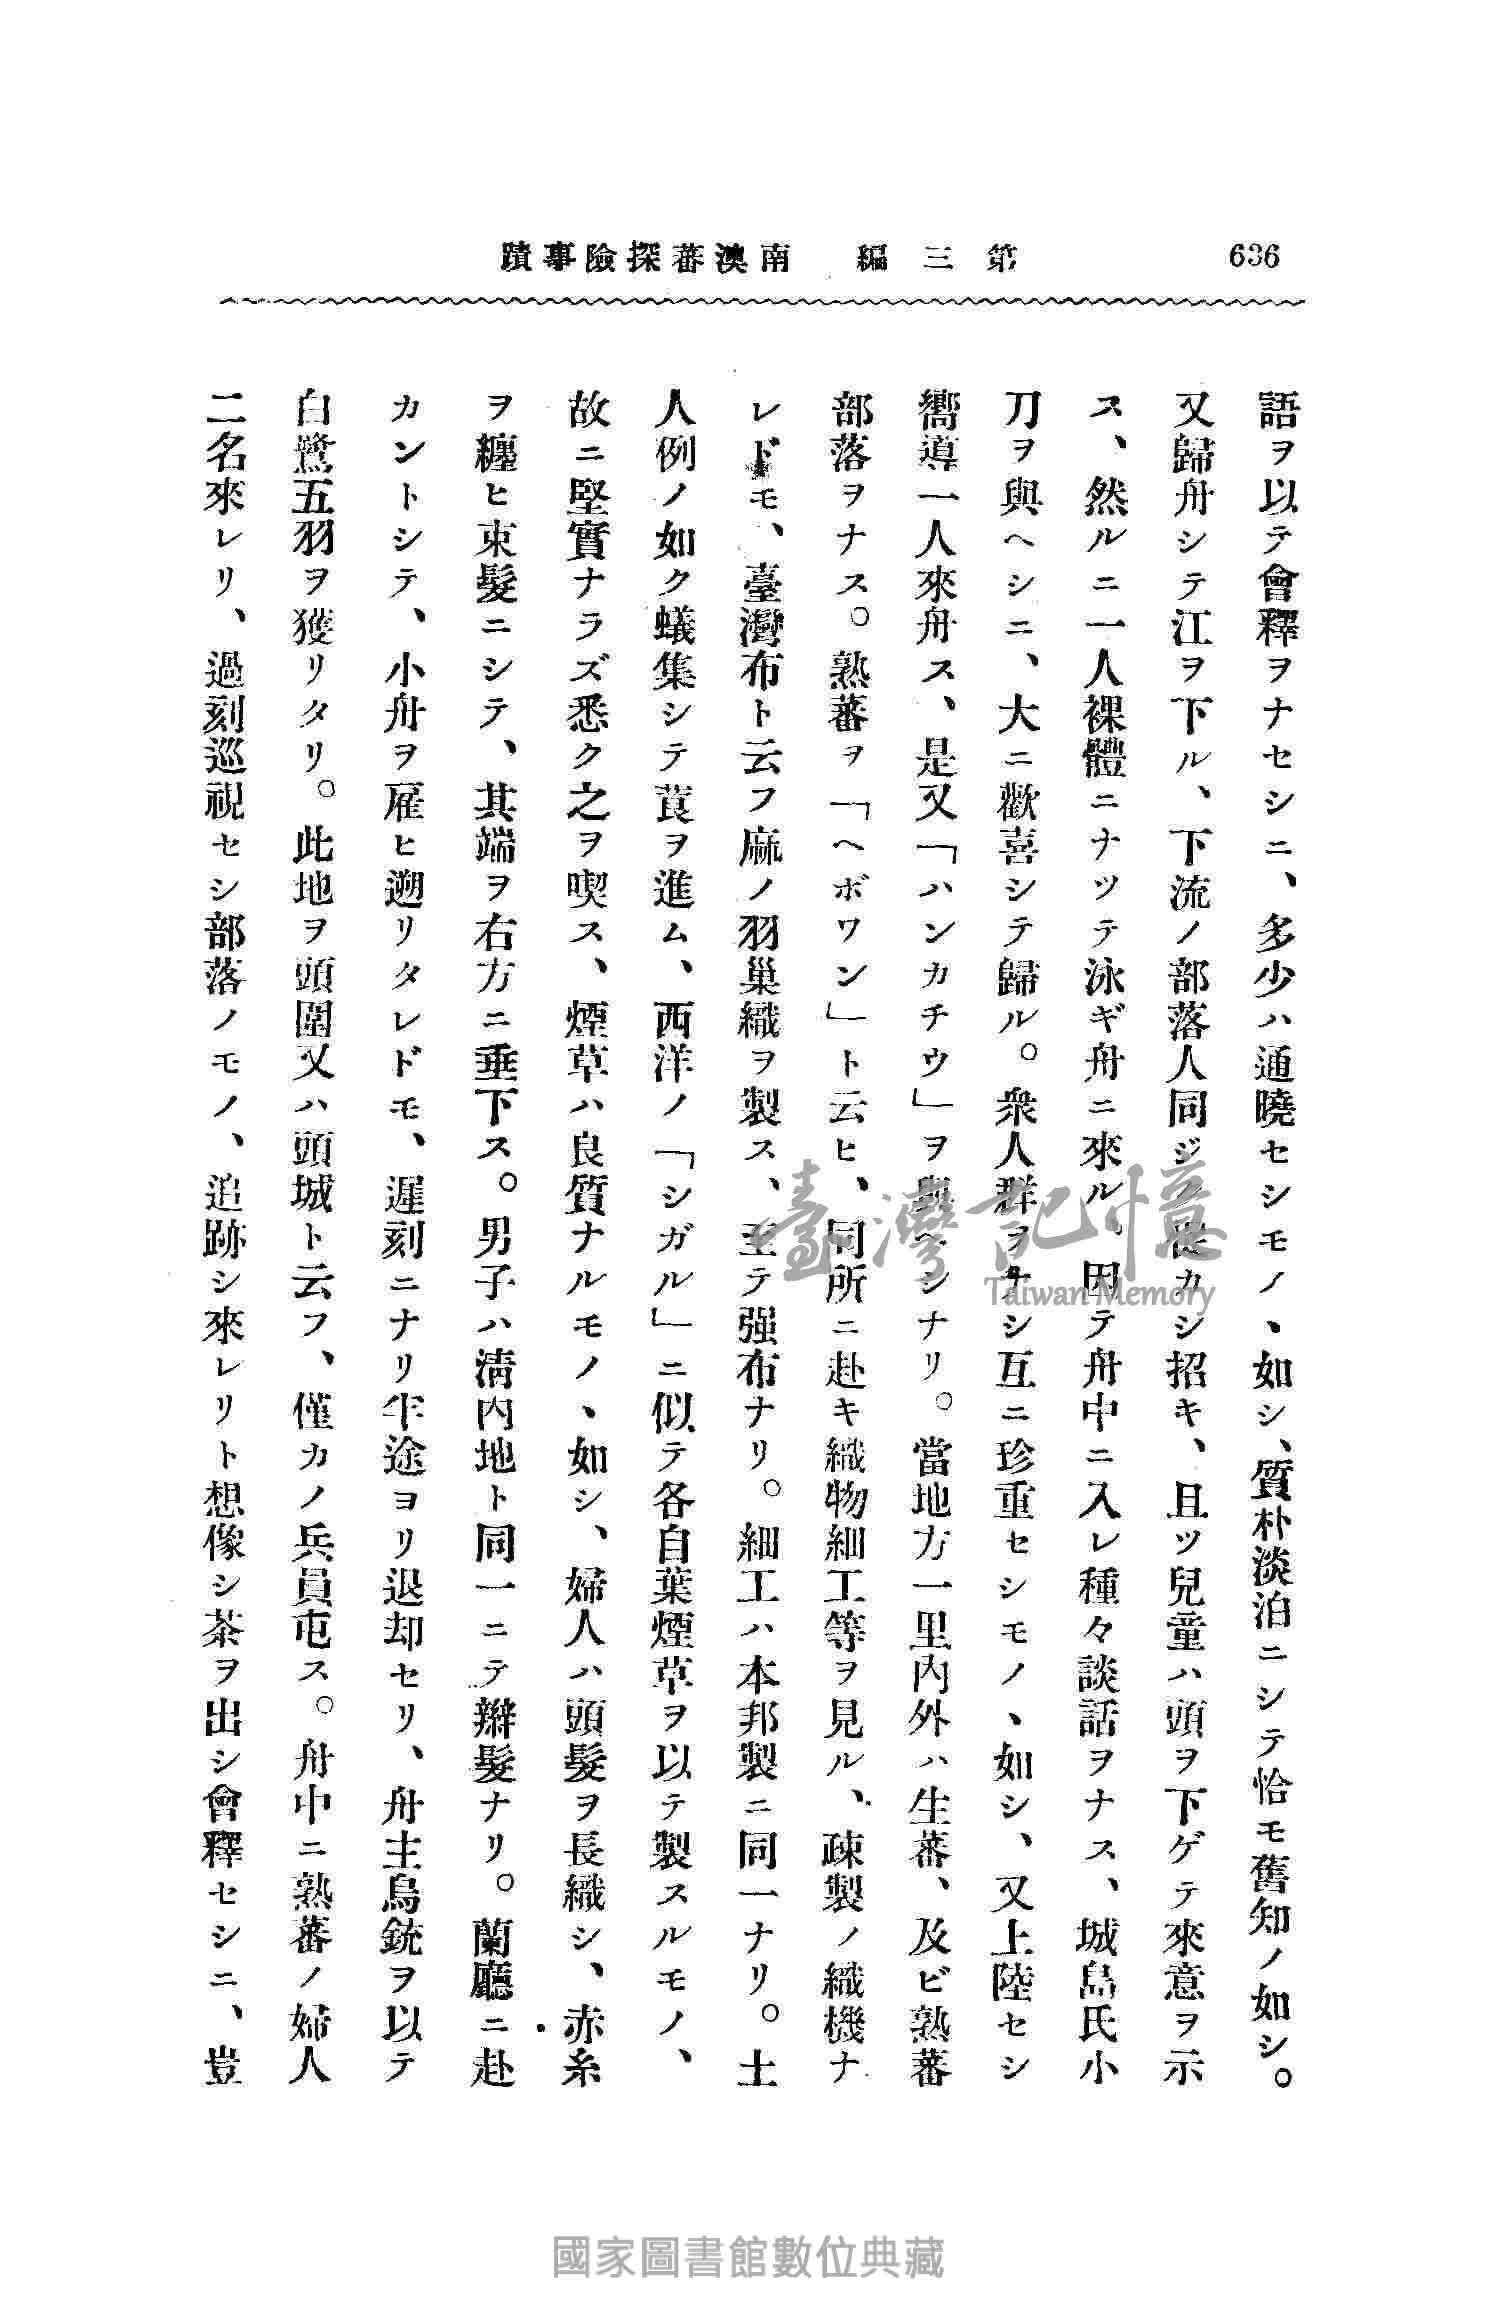 636
第三編　南澳蕃探險事蹟
語ヲ以テ會釋ヲナセシニ、多少ハ通曉セシモノヽ如シ、質朴淡泊ニシテ恰モ舊知ノ如シ。
又歸舟シテ江ヲ下ル、下流ノ部落人同ジク從カシ招キ、且ツ兒童ハ頭ヲ下ゲテ來意ヲ示
ス、然ルニ一人裸體ニナツテ泳ギ舟ニ來ル、因テ舟中ニ入レ種々談話ヲナス、城島氏小
刀ヲ與ヘシニ、大ニ歡喜シテ歸ル。衆人群ヲナシ互ニ珍重セシモノヽ如シ、又上陸セシ
嚮導一人來舟ス、是又「ハンカチウ」ヲ與ヘシナリ。當地方一里內外ハ生蕃、及ビ熟蕃
部落ヲナス。熟蕃ヲ「ヘボワン」ト云ヒ、同所ニ赴キ織物細工等ヲ見ル、疎製ノ織機ナ
レドモ、臺灣布ト云フ麻ノ羽巢織ヲ製ス、至テ强布ナリ。細工ハ本邦製ニ同一ナリ。土
人例ノ如ク蟻集シテ莨ヲ進ム、西洋ノ「シガル」ニ似テ各自葉煙草ヲ以テ製スルモノ、
故ニ堅實ナラズ悉ク之ヲ喫ス、煙草ハ良質ナルモノヽ如シ、婦人ハ頭髮ヲ長織シ、赤糸
ヲ纏ヒ束髮ニシテ、其端ヲ右方ニ垂下ス。男子ハ淸內地ト同一ニテ辮髮ナリ。蘭廳ニ赴
カントシテ、小舟ヲ雇ヒ遡リタレドモ、遲刻ニナリ半途ヨリ退却セリ、舟主鳥銃ヲ以テ
白鷺五羽ヲ獲リタリ。此地ヲ頭圍又ハ頭城ト云フ、僅カノ兵員屯ス。舟中ニ熟蕃ノ婦人
二名來レリ、過刻巡視セシ部落ノモノ、追跡シ來レリト想像シ茶ヲ出シ會釋セシニ、豈
臺灣記憶
Taiwan Memory
國家圖書館數位典藏